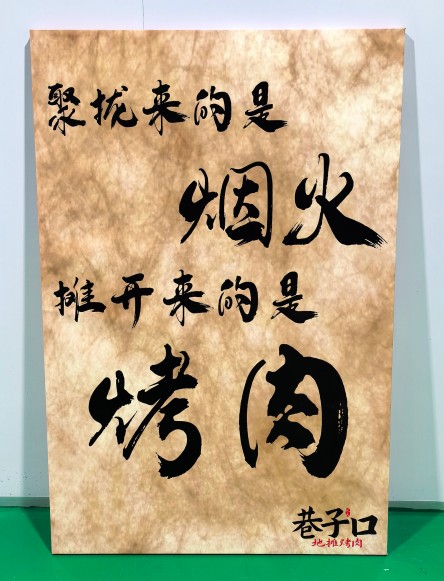 聚拢来的是
烟火
摊开来的是
烤肉
巷子口
地摊烤肉